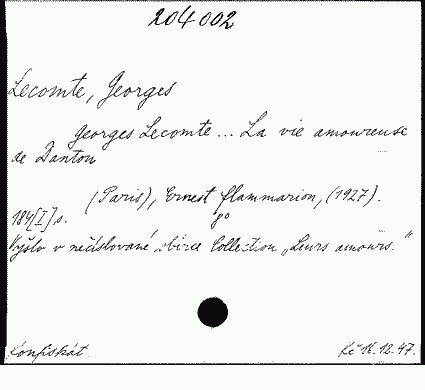 204002
Lecomte, Georges
Georges Lecomte ... La vie amoureuse
de Danton
(Paris), Ernest Flammarion, (1927).
184[I] s. 8°
Vyšlo v nečíslované sbírce Collection „Leurs amours."
Konfiskát
Kč 16.12.47.